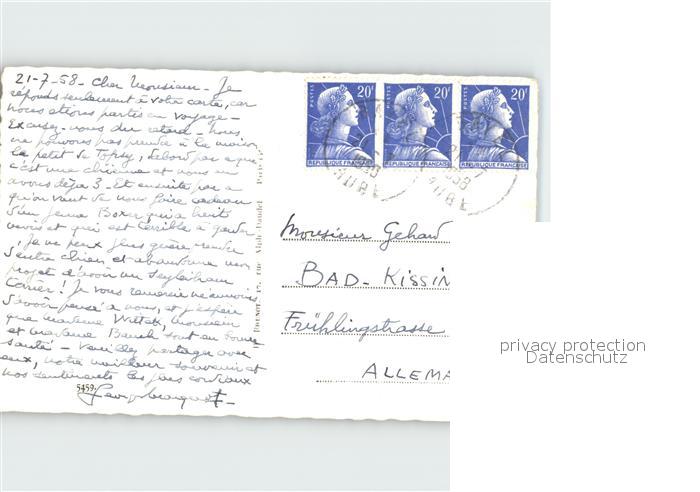 21-7-58- Cher Monsieur- Je
réponds seulement à votre carte, car
nous étions partis en voyage-
Excusez-vous du retard- Nous
ne pouvons pas prendre à la maison
le petit de Topsy, d'abord par a que
c'est une chienne et nous en
avons déjà 3- Et ensuite par a
qu'on vient de nous faire cadeau
d'un jeune Boxer qui a huit
mois et qui est terrible à garder
Je ne peux plus guère prendre
d'autre chien et abandonne mon
projet d'avoir un
terrier! Je vous remercie néanmoins
d'avoir pensé à nous, et j'espère
que madame Wittek, monsieur
et madame sont en bonne
santé- Veuillez partager avec
eux, notre meilleur souvenir et
nos sentiments les plus cordiaux
5459
POSTES 20F
REPUBLIQUE FRANÇAISE
POSTES 20F
REPUBLIQUE FRANÇAISE
POSTES 20F
REPUBLIQUE FRANÇAISE
Monsieur Gehard
BAD-KISSIN
Frühlingstrasse
ALLEMA
privacy protection
Datenschutz